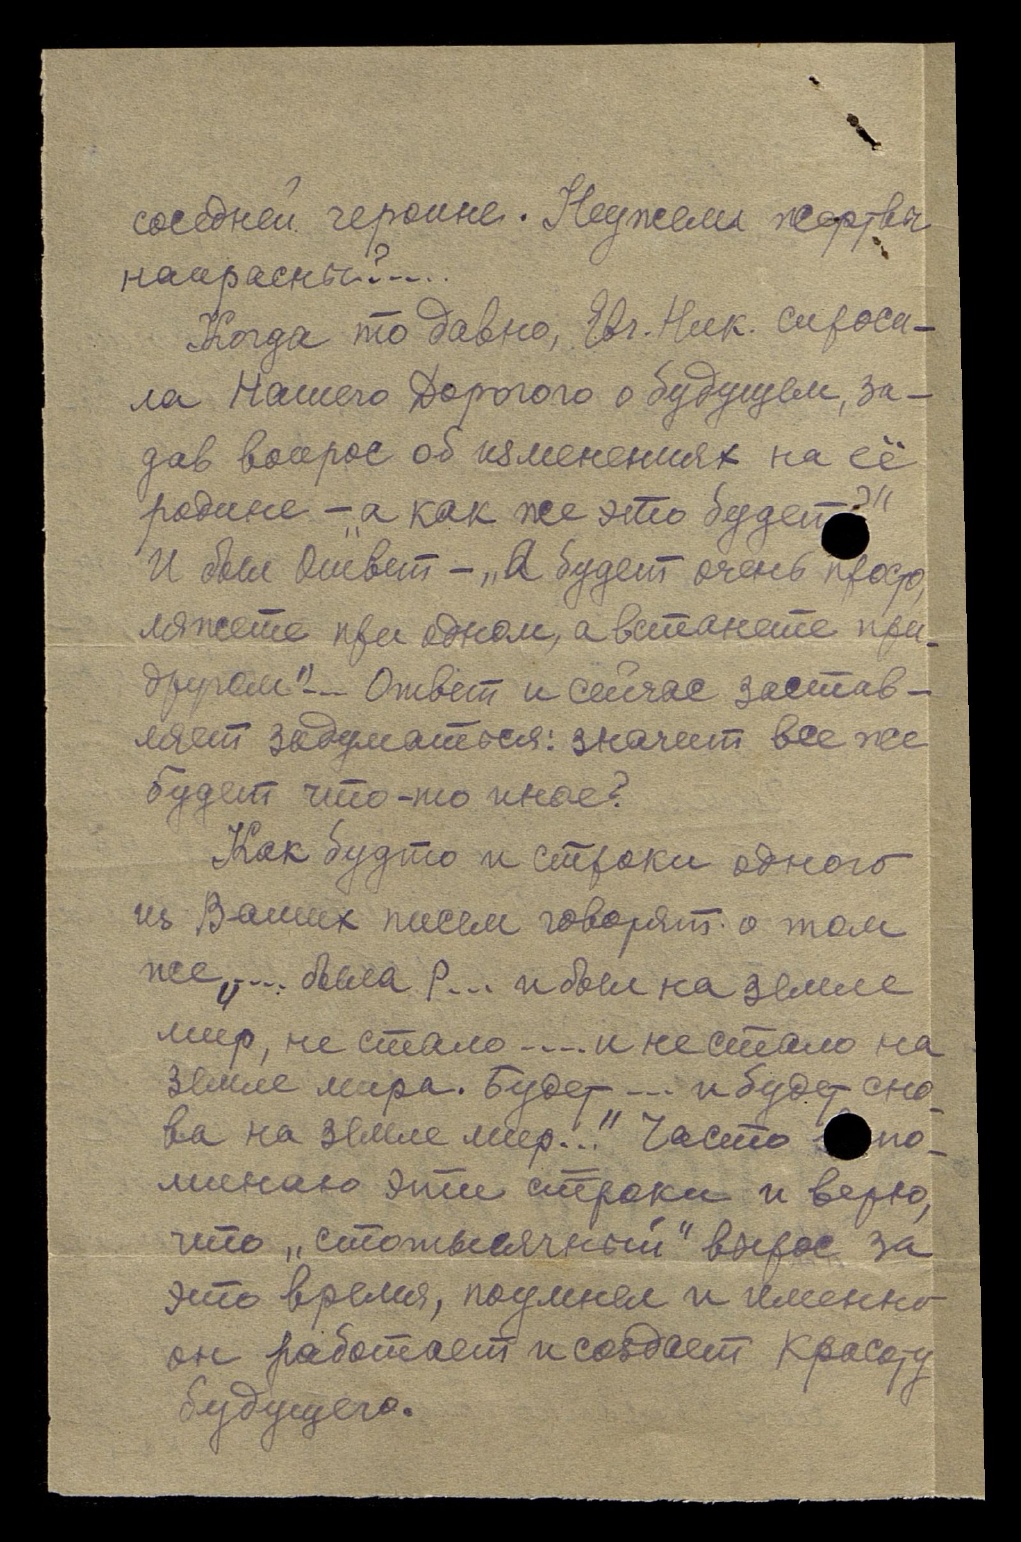 соседней героине. Неужели жертвы
напрасны?....
Когда то давно, Евг. Ник. спроси-
ла Нашего Дорогого о будущем, за-
дав вопрос об изменениях на её
родине – „а как же это будет?"
И был Ответ – „А будет очень просто,
ляжете при одном, а встанете при
другом"... Ответ и сейчас застав-
ляет задуматься: значит все же
будет что-то иное?
Как будто и строки одного
из Ваших писем говорят о том
же „.... была Р... и был на земле
мир, не стало ..... и не стало на
земле мира. Будет .... и будет сно-
ва на земле мир..." Часто по-
минаю эти строки и верю,
что „стотысячный" вырос за
это время, поумнел и именно
он работает и создает Красоту
будущего.